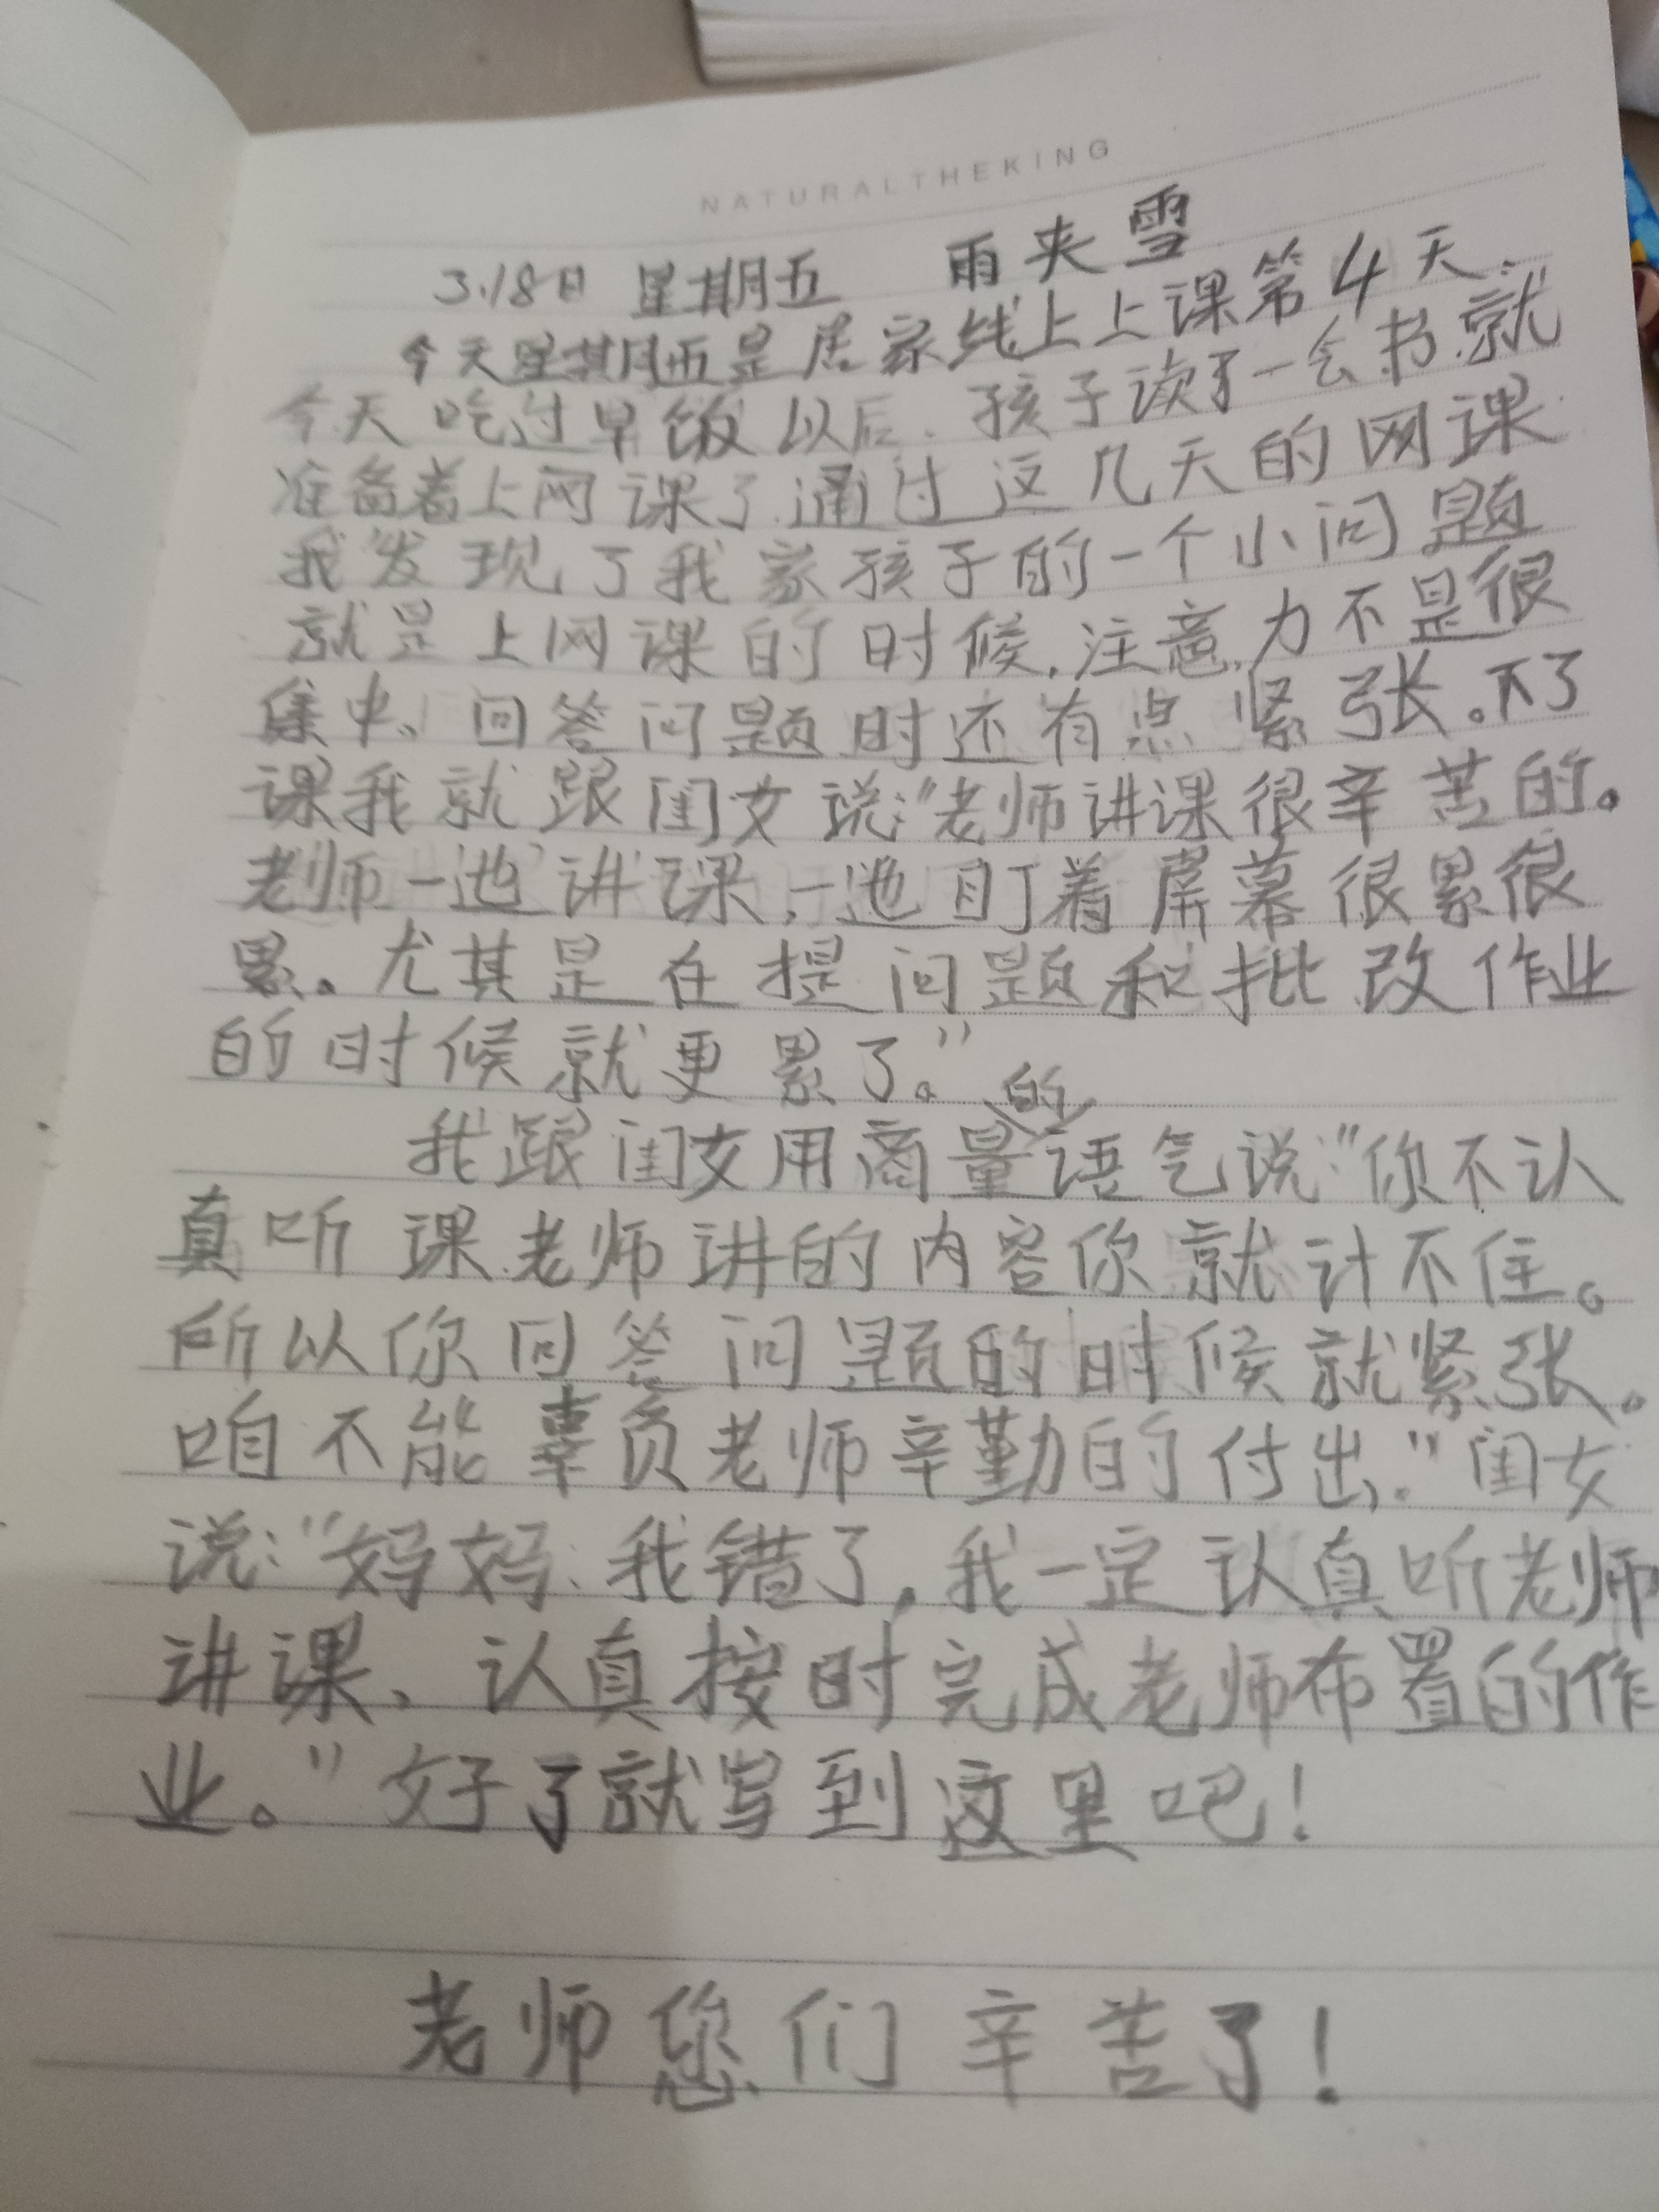 NATURALTHEKING
3.18日 星期五 雨夹雪
今天星期五是居家线上上课第4天.
今天吃过早饭以后.孩子读了一会书.就
准备着上网课了.通过这几天的网课
我发现了我家孩子的一个小问题
就是上网课的时候,注意力不是很
集中、回答问题时还有点紧张。下了
课我就跟闺女说:“老师讲课很辛苦的。
老师一边讲课,一边盯着屏幕很累很
累。尤其是在提问题和批改作业
的时候就更累了。”
的
我跟闺女用商量语气说:“你不认
真听课老师讲的内容你就计不住。
所以你回答问题的时候就紧张。
咱不能辜负老师辛勤的付出.”闺女
说:“妈妈:我错了,我一定认真听老师
讲课、认真按时完成老师布置的作
业。”好了就写到这里吧!
老师您们辛苦了!